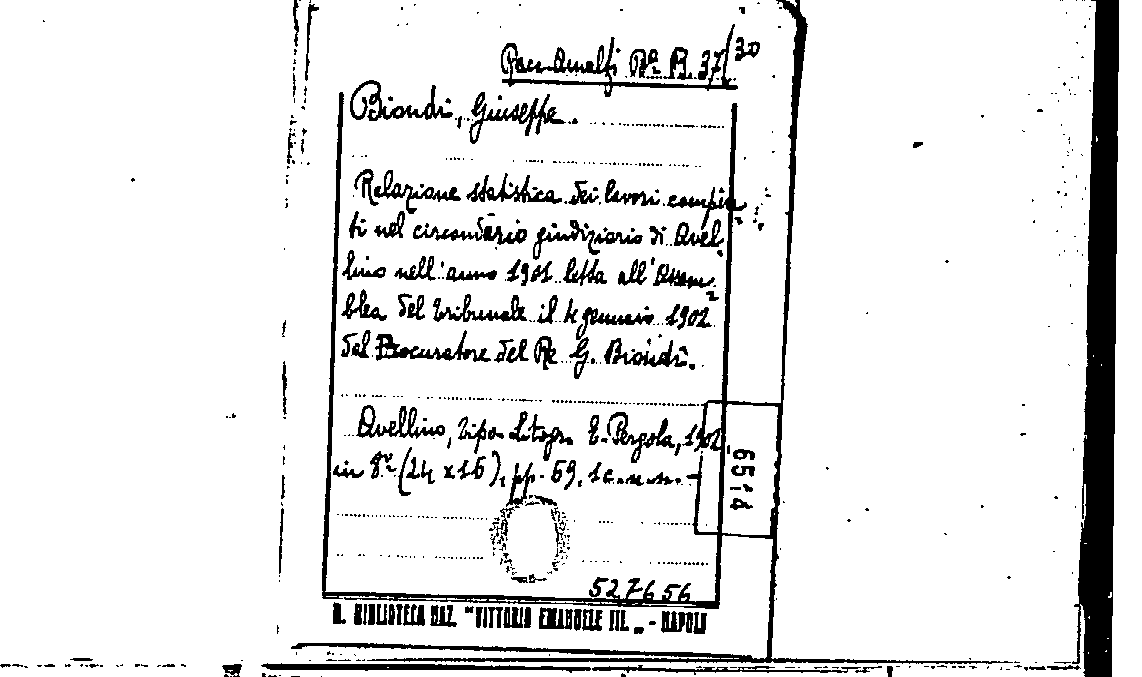 Racc. Amalfi Bª B. 37/30
Biondi, Giuseppe.
Relazione statistica dei lavori compiu-
ti nel circondario giudiziario di Avel-
lino nell'anno 1901 letta all'Assem-
blea del tribunale il 4 gennaio 1902
dal Procuratore del Re G. Biondi.
Avellino, tipo-Litogr. E. Pergola, 1902
in 8º (24 x 16), pp. 69, 1 c. n. n. -
6514
527656
R. BIBLIOTECA NAZ. "VITTORIO EMANUELE III. „ - NAPOLI